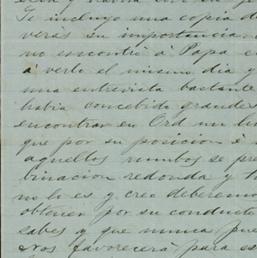 Te incluyo una copia d
verás su importancia
no encontré á Papa e
á verlo el mismo dia y
una entrevista bastante
habia concebido grandes
encontrar en Ord un
que por su posicion é i
aquellos rumbos se pre
binacion redonda y
no lo es y creo deberemos
obtener por su conducto
sabes y que nunca pue
Nos favorecerá para es